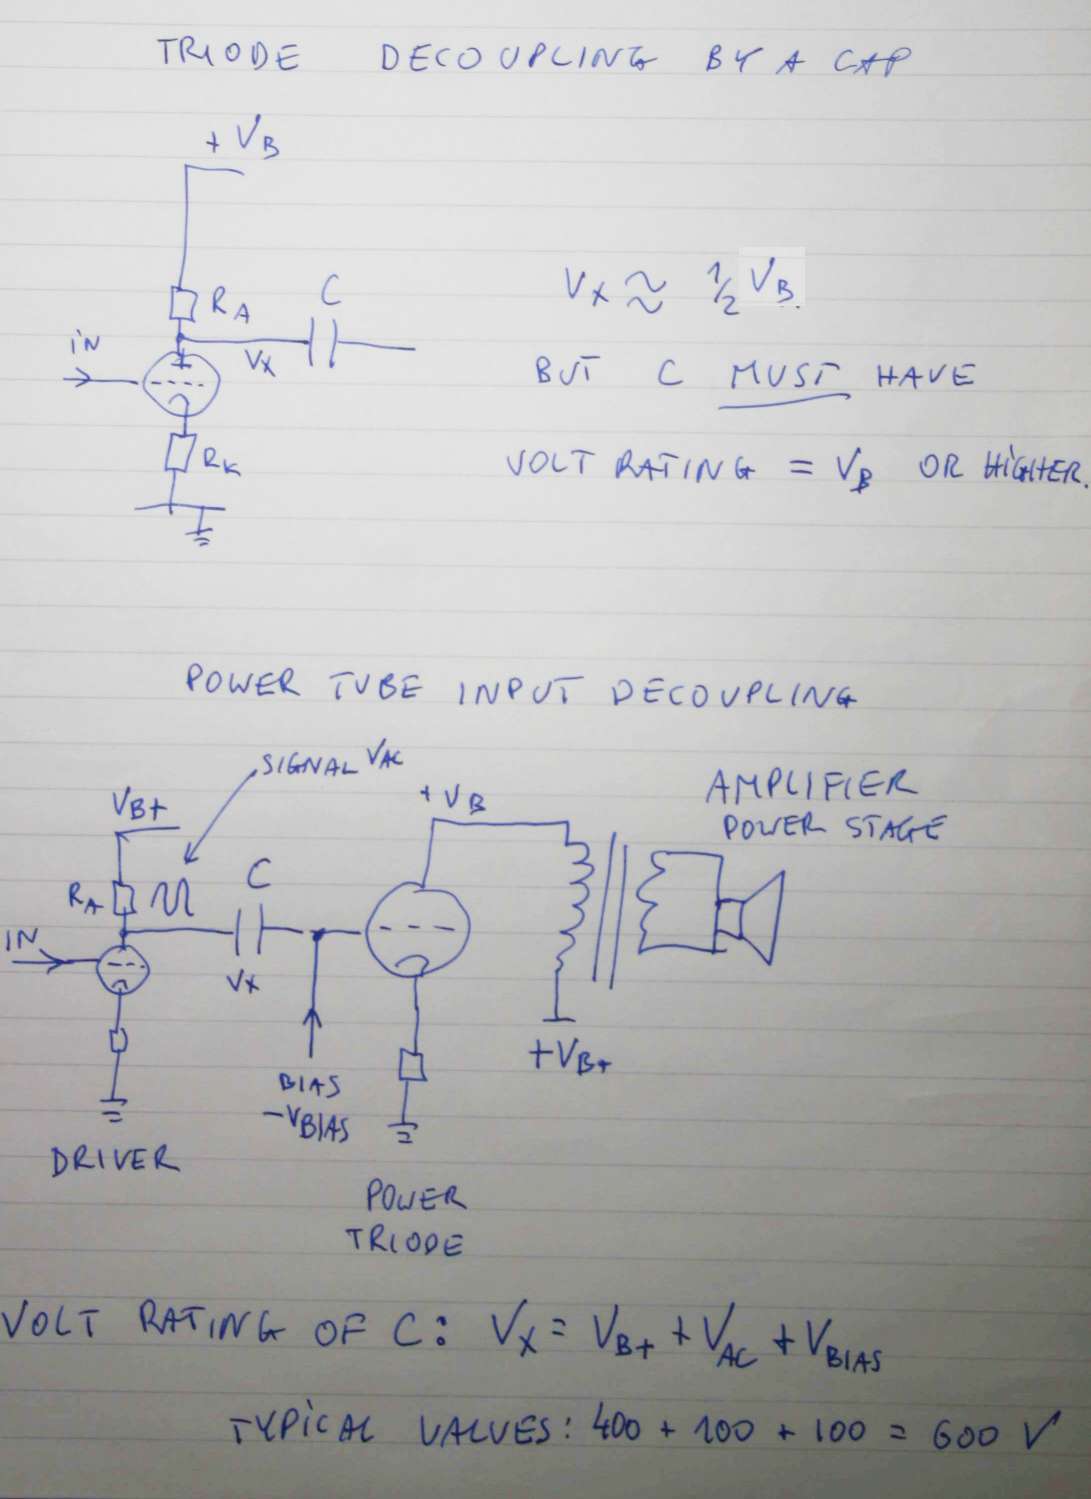 TRIODE DECOUPLING BY A CAP
+ VB
RA
C
IN
VX
RK
VX ≈ 1/2 VB.
BUT C MUST HAVE
VOLT RATING = VB OR HIGHER.
POWER TUBE INPUT DECOUPLING
SIGNAL VAC
VB+
+ VB
AMPLIFIER
POWER STAGE
RA
C
IN
VX
BIAS
-VBIAS
+VB+
DRIVER
POWER
TRIODE
VOLT RATING OF C: VX = VB+ + VAC + VBIAS
TYPICAL VALUES: 400 + 100 + 100 = 600 V